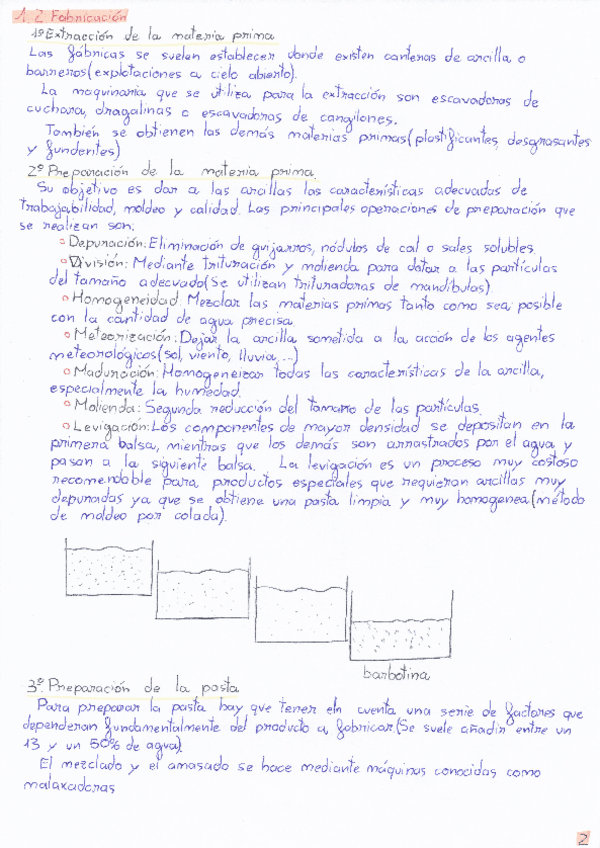 1.2 Fabricación
1º Extracción de la materia prima
Las fábricas se suelen establecer donde existen canteras de arcilla o
barreros (explotaciones a cielo abierto).
La maquinaria que se utiliza para la extracción son escavadoras de
cuchara, dragalinas o escavadoras de cangilones.
También se obtienen las demás materias primas (plastificantes, desgrasantes
y fundentes)
2º Preparación de la materia prima
Su objetivo es dar a las arcillas las características adecuadas de
trabajabilidad, moldeo y calidad. Las principales operaciones de preparación que
se realizan son:
Depuración: Eliminación de guijarros, nódulos de cal o sales solubles.
División: Mediante trituración y molienda para dotar a las partículas
del tamaño adecuado (Se utilizan trituradoras de mandíbulas)
Homogeneidad. Mezclar las materias primas tanto como sea posible
con la cantidad de agua precisa.
Meteorización: Dejar la arcilla sometida a la acción de los agentes
meteorológicos (sol, viento, lluvia,...)
Maduración: Homogeneizar todas las características de la arcilla,
especialmente la humedad.
Molienda: Segunda reducción del tamaño de las partículas.
Levigación: Los componentes de mayor densidad se depositan en la
primera balsa, mientras que los demás son arrastrados por el agua y
pasan a la siguiente balsa. La levigación es un proceso muy costoso
recomendable para productos especiales que requieran arcillas muy
depuradas ya que se obtiene una pasta limpia y muy homogenea (método
de moldeo por colada).
barbotina
3º. Preparación de la pasta
Para preparar la pasta hay que tener en cuenta una serie de factores que
dependeran fundamentalmente del producto a fabricar (Se suele añadir entre un
13 y un 50% de agua)
El mezclado y el amasado se hace mediante máquinas conocidas como
malaxadoras
2